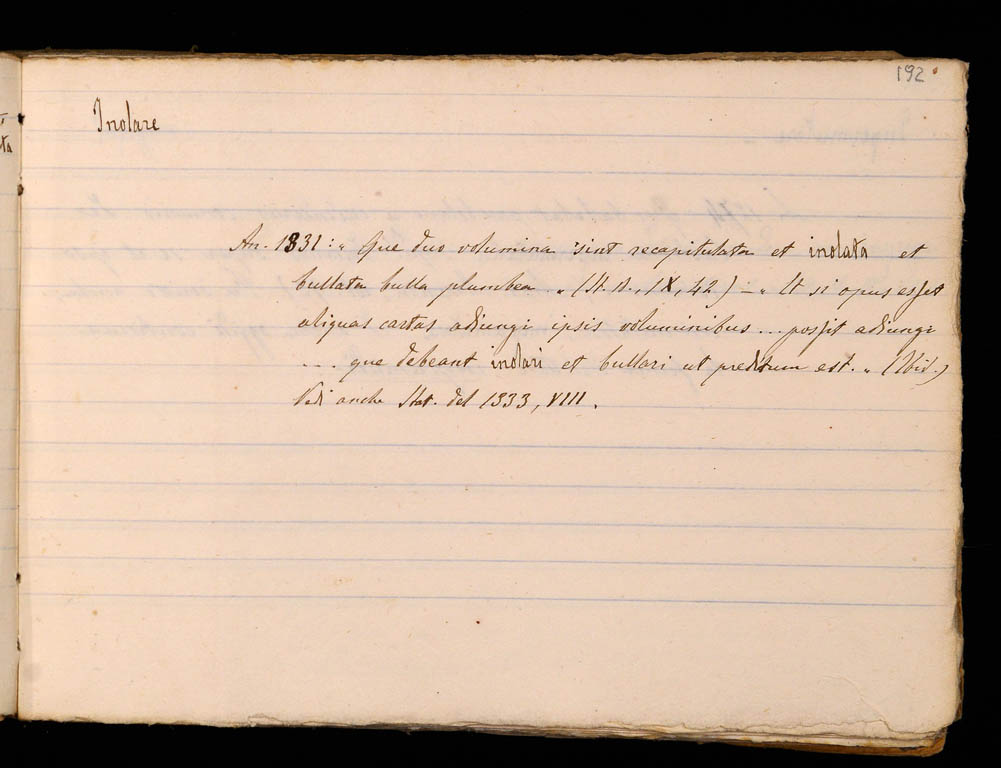 192
Inolare
An. 1331: „ Que duo volumina sint recapitulata et inolata et
bullata bulla plumbea. „ (St. B., IX, 42) – „ Et si opus esset
aliquas cartas adiungi ipsis voluminibus ... possit adiungi
... que debeant inolari et bullari ut predictum est. „ (Ibid.)
Vedi anche Stat. del 1333, VIII.